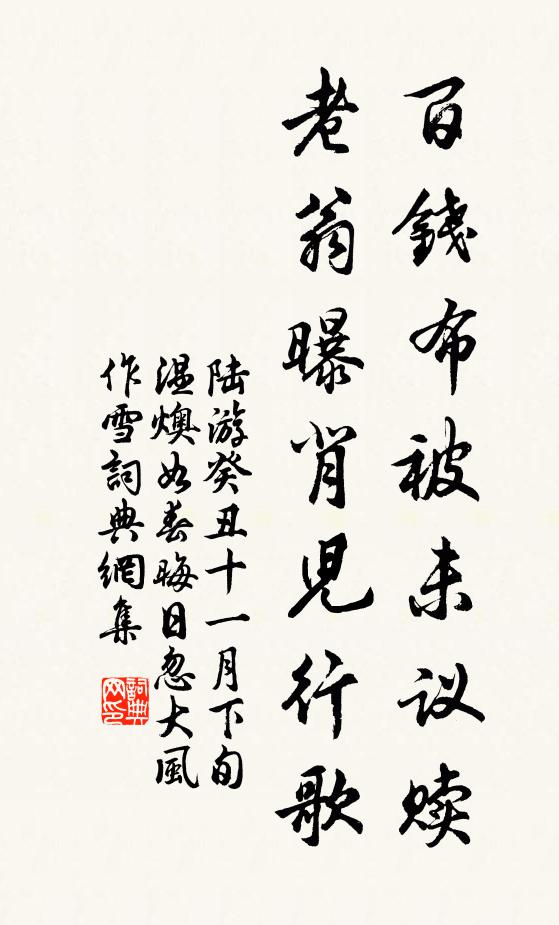 百錢布被未议赎
老翁曝背児行歌
陆游癸丑十一月下旬
温燠如春晦日忽大風
作雪詞典網集
詞典网印